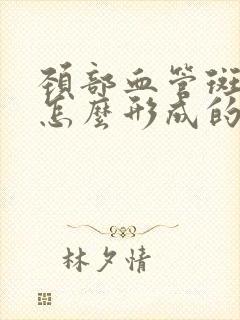 頸部血管斑
怎麼形成的
林夕情